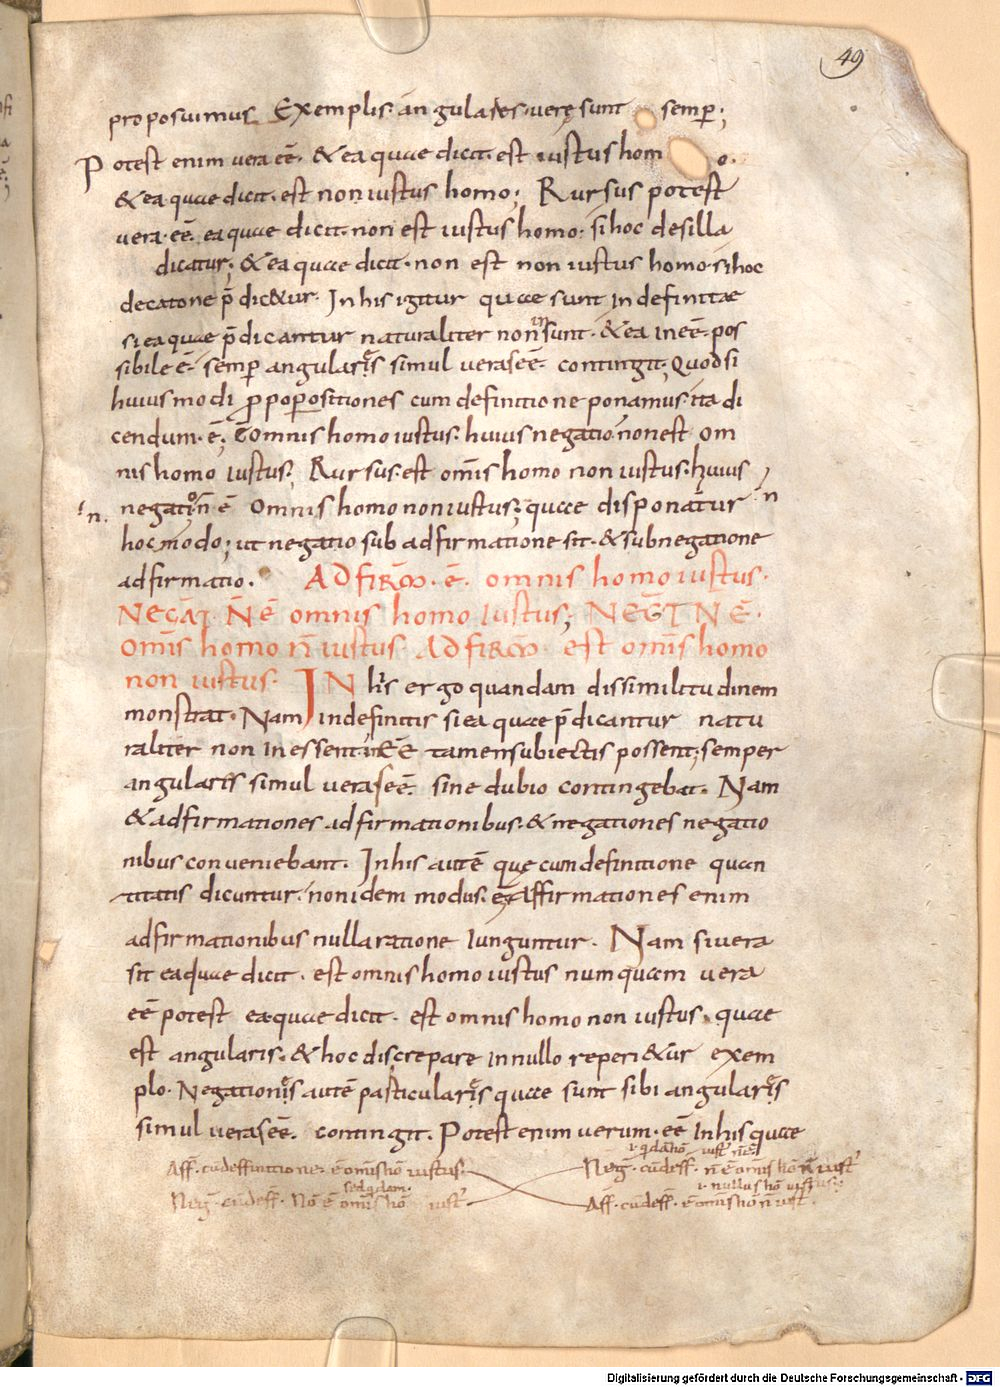 49
proposuimus Exemplis· angulares· verę sunt semꝑ;
Potest enim vera eē· & ea quae dicit· est iustus hom o·
& ea quae dicit· est non iustus homo; Rursus potest
vera· eē· ea quae dicit· non est iustus homo· si hoc de silla
dicatur; & ea quae dicit· non est non iustus homo· si hoc
decatone p̄ dic&ur· In his igitur quae sunt indefinitae
si ea quae p̄dicantur naturaliter non insunt· & ea ineē· pos
sibile ē· semꝑ angularis simul veras eē· contingit; Quod si
huius modi ꝓpoꝑositiones cum definitione ponamus· ita di
cendum· ē; Est omnis homo iustus· huius negatio non est om
nis homo iustus; Rursus· est om̄is homo non iustus· huius
negatio n̄ ē Omnis homo non iustus; quae disponātur
hoc modo; ut negatio sub adfirmatione sit· & sub negatione
adfirmatio· ADfiRꝏ· ē· omnis homo iustus·
NEGAT· N̄ ē omnis homo iustus; NEGT N̄ Ē·
Om̄is homo n̄ iustus· ADfiRꝏ· est om̄is homo
non iustus· IN his ergo quandam dissimilitudinem
monstrat· Nam indefinitis si ea quae p̄dicantur natu
raliter non inessent inēē tamen subiectis possent; semper
angularis simul veras eē· sine dubio contingebat· Nam
& adfirmationes adfirmationibus· & negationes negatio
nibus conveniebant· In his autē quę cum definitione quan
titatis dicuntur· non idem modus· ē; Affirmationes enim
adfirmationibus nulla ratione iunguntur· Nam si vera
sit ea quae dicit· est omnis homo iustus numquam vera
eē potest ea quae dicit· est omnis homo non iustus· quae
est angularis· & hoc discrepare in nullo reperi&ur exem
plo· Negationis autē particularis quae sunt sibi angularis
simul veras eē· contingit· Potest enim verum· eē In his quae
Aff̄· cū deffinitione· ē om̄is hō iustus·
Neḡ· cū deff̄· Nō ē om̄is hō iust·
Neḡ· cū deff̄· n̄ ē om̄is hō n̄ iust
Aff̄· cū deff̄· ē om̄is hō n̄ iust·
Digitalisierung gefördert durch die Deutsche Forschungsgemeinschaft - DFG